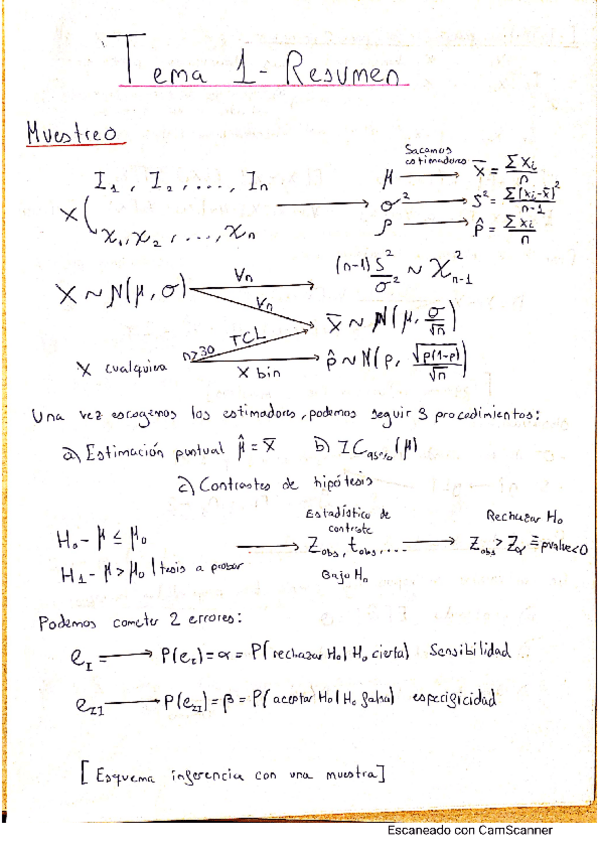 Tema 1 - Resumen
Muestreo
Sacamos estimadores
I₁, I₂, ..., Iₙ
X
x₁, x₂, ..., xₙ
μ → x̄ = Σxᵢ/n
σ² → S² = Σ(xᵢ-x̄)²/n-1
ρ → p̂ = Σxᵢ/n
X ~ N(μ, σ)
∀n
(n-1)S²/σ² ~ χ²ₙ₋₁
∀n
x̄ ~ N(μ, σ/√n)
X cualquiera
n>30 TCL
X bin
p̂ ~ N(p, √p(1-p)/√n)
Una vez escogemos los estimadores, podemos seguir 3 procedimientos:
a) Estimación puntual μ̂ = x̄ b) IC₉₅%(μ)
c) Contrastes de hipótesis
H₀ - μ ≤ μ₀
H₁ - μ > μ₀ | tesis a probar
Estadístico de contraste
Z_obs, t_obs, ...
Bajo H₀
Rechazar H₀
Z_obs > Z_α ≡ pvalue<0
Podemos cometer 2 errores:
e_I → P(e_I) = α = P(rechazar H₀ | H₀ cierta) Sensibilidad
e_II → P(e_II) = β = P(aceptar H₀ | H₀ falsa) especificidad
[Esquema inferencia con una muestra]
Escaneado con CamScanner